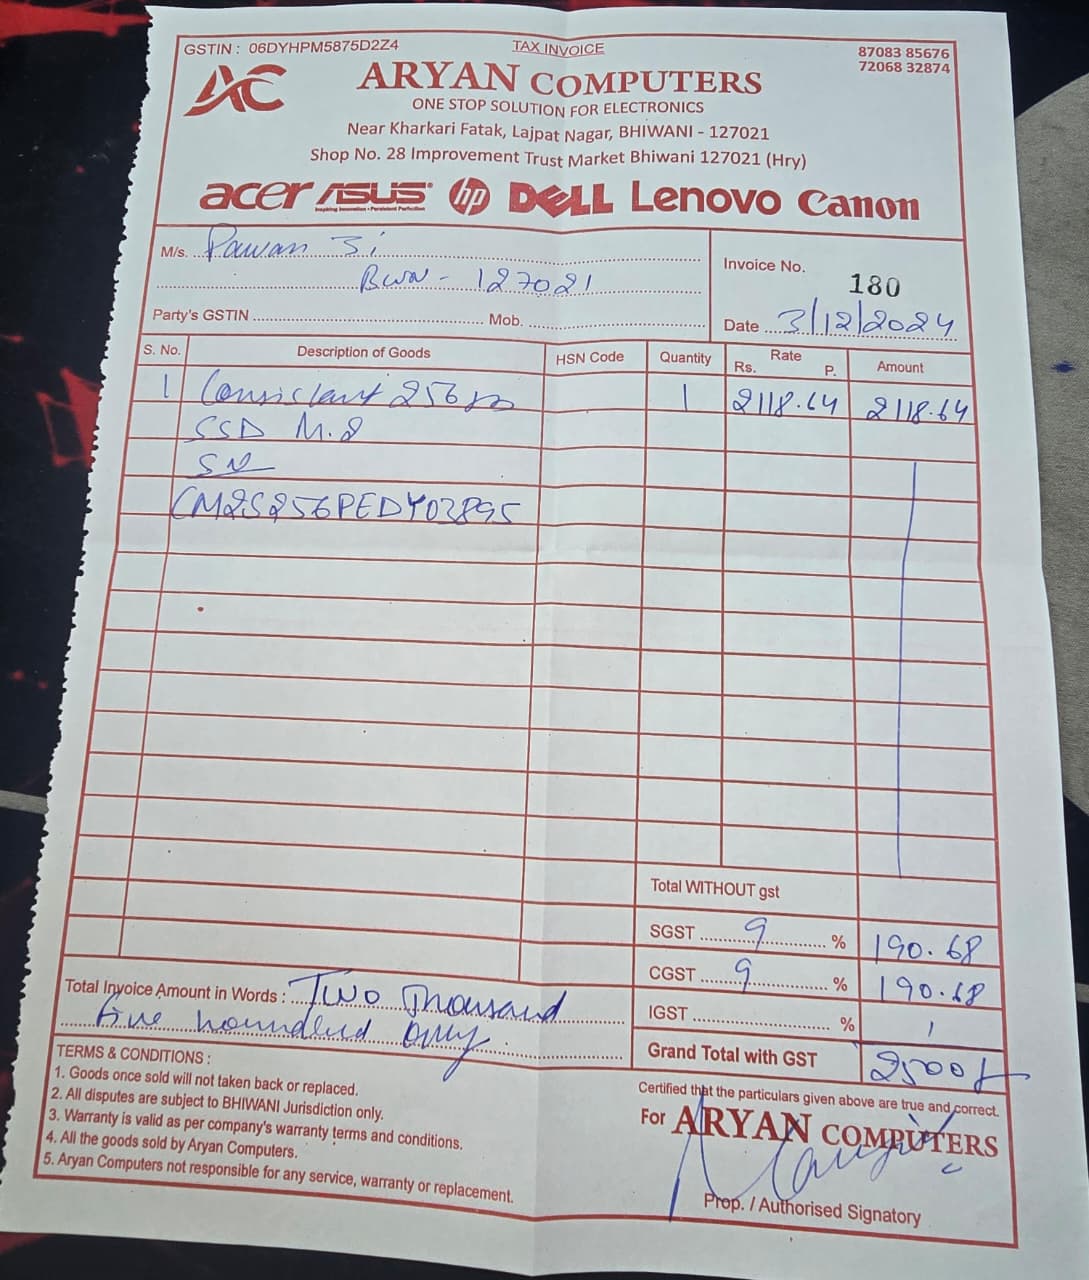 GSTIN : 06DYHPM5875D2Z4
TAX INVOICE
87083 85676
72068 32874
AC
ARYAN COMPUTERS
ONE STOP SOLUTION FOR ELECTRONICS
Near Kharkari Fatak, Lajpat Nagar, BHIWANI - 127021
Shop No. 28 Improvement Trust Market Bhiwani 127021 (Hry)
acer ASUS hp DELL Lenovo Canon
Inspiring Innovation • Persistent Perfection
M/s. Pawan Ji
BWN - 127021
Invoice No. 180
Party's GSTIN Mob.
Date 3/12/2024
S. No. Description of Goods HSN Code Quantity Rate Rs. P. Amount
1 Consistant 256 1 2118.64 2118.64
SSD M.2
SN
CM2S256PEDY03895
Total WITHOUT gst
SGST 9 % 190.68
CGST 9 % 190.68
IGST %
Grand Total with GST 2500/-
Total Invoice Amount in Words : Two Thousand
five houndled only.
TERMS & CONDITIONS :
1. Goods once sold will not taken back or replaced.
2. All disputes are subject to BHIWANI Jurisdiction only.
3. Warranty is valid as per company's warranty terms and conditions.
4. All the goods sold by Aryan Computers.
5. Aryan Computers not responsible for any service, warranty or replacement.
Certified that the particulars given above are true and correct.
For ARYAN COMPUTERS
Prop. / Authorised Signatory